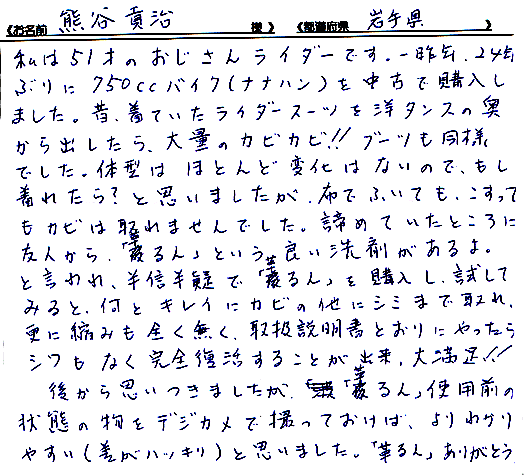 《お名前 熊谷 貢治 様 》 《都道府県 岩手県 》
私は51才のおじさんライダーです。一昨年、24年
ぶりに750ccバイク(ナナハン)を中古で購入し
ました。昔、着ていたライダースーツを洋タンスの奥
から出したら、大量のカビカビ!!ブーツも同様
でした。体型はほとんど変化はないので、もし
着れたら?と思いましたが、布でふいても、こすって
もカビは取れませんでした。諦めていたところに
友人から、「革るん」という良い洗剤があるよ。
と言われ、半信半疑で「革るん」を購入し、試して
みると、何とキレイにカビの他にシミまで取れ、
更に縮みも全く無く、取扱説明書とおりにやったら
シワもなく完全復活することが出来、大満足!!
後から思いつきましたが、「革るん」使用前の
状態の物をデジカメで撮っておけば、よりわかり
やすい(差がハッキリ)と思いました。「革るん」ありがとう